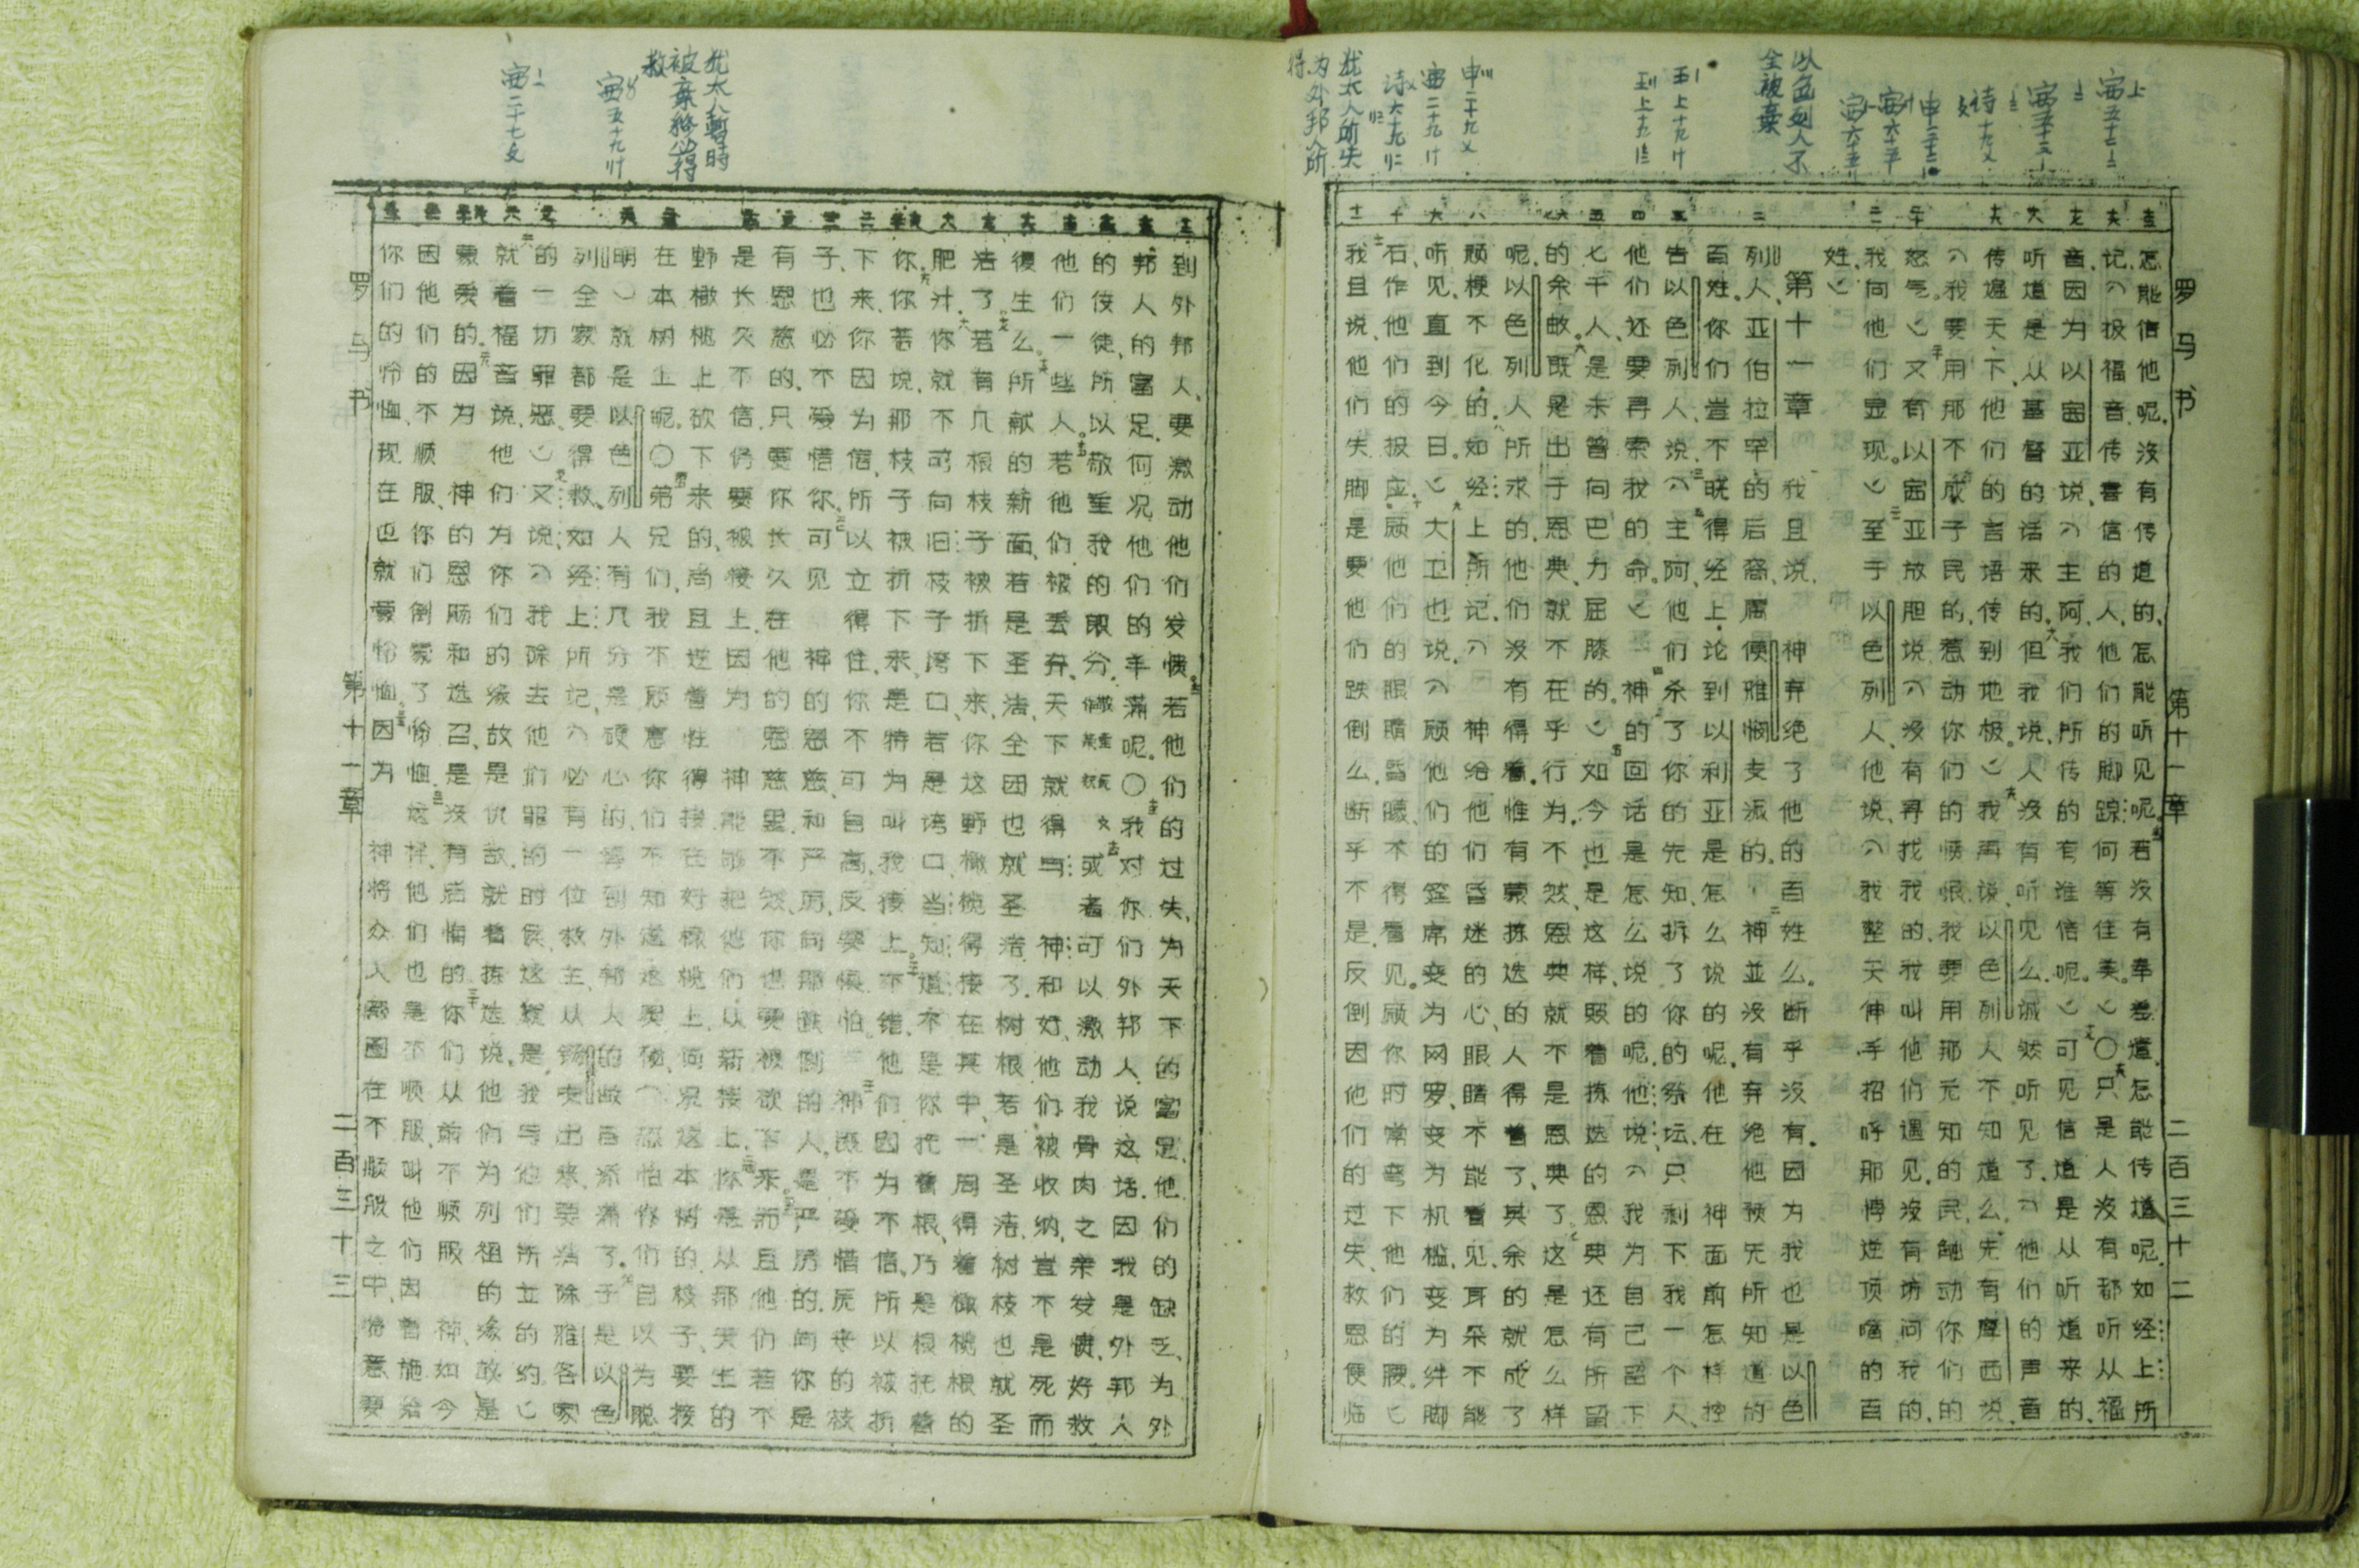 罗马书
第十一章
二百三十二
怎能信他呢、没有传道的、怎能听见呢。若没有奉差遣、怎能传道呢、如经上所
记、︵报福音传喜信的人、他们的脚踪何等佳美。︶〇只是人没有都听从福
音、因为以赛亚说、︵主阿、我们所传的有谁信呢。︶可见信道是从听道来的、
听道是从基督的话来的、但我说、人没有听见么、诚然听见了、︵他们的声音
传遍天下、他们的言语传到地极。︶我再说、以色列人不知道么、先有摩西说、
︵我要用那不成子民的、惹动你们的愤恨、我要用那无知的民、触动你们的
怒气。︶又有以赛亚放胆说、︵没有寻找我的、我叫他们遇见、没有访问我的、
我向他们显现。︶至于以色列人、他说、︵我整天伸手招呼那悖逆顶嘴的百
姓。︶
第十一章 我且说、神弃绝了他的百姓么。断乎没有。因为我也是以色
列人、亚伯拉罕的后裔、属便雅悯支派的。神並没有弃绝他预先所知道的
百姓。你们岂不晓得经上论到以利亚是怎么说的呢、他在神面前怎样控
告以色列人说、︵主阿、他们杀了你的先知、拆了你的祭坛、只剩下我一个人、
他们还要再索我的命。︶神的回话是怎么说的呢、他说、︵我为自己留下
七千人、是未曾向巴力屈膝的。︶如今也是这样、照着拣选的恩典还有所留
的余数。既是出于恩典、就不在乎行为。不然、恩典就不是恩典了。这是怎么样
呢、以色列人所求的、他们没有得着。惟有蒙拣选的人得着了、其余的就成了
顽梗不化的。如经上所记、︵神给他们昏迷的心、眼睛不能看见、耳朵不能
听见、直到今日。︶大卫也说、︵愿他们的筵席变为网罗、变为机槛、变为绊脚
石、作他们的报应。愿他们的眼睛昏矇、不得看见。愿你时常弯下他们的腰。︶
我且说、他们失脚是要他们跌倒么、断乎不是、反倒因他们的过失、救恩便临
以色列人不全被棄
犹太人所失为外邦人所得
罗马书
第十一章
二百三十三
到外邦人、要激动他们发愤。若他们的过失、为天下的富足、他们的缺乏、为外
邦人的富足、何况他们的丰满呢。〇我对你们外邦人说这话、因我是外邦人
的使徒、所以敬重我的职分、或者可以激动我骨肉之亲发愤、好救
他们一些人。若他们被丢弃、天下就得与神和好、他们被收纳、岂不是死而
復生么。所献的新面、若是圣洁、全团也就圣洁了、树根若是圣洁、树枝也就圣
洁了。若有几根枝子被折下来、你这野橄榄得接在其中、一同得着橄榄根的
肥汁、你就不可向旧枝子夸口、若是夸口、当知道不是你托着根、乃是根托着
你。你若说、那枝子被折下来、是特为叫我接上。不错、他们因为不信、所以被折
下来、你因为信、所以立得住、你不可自高、反要惧怕。神既不爱惜原来的枝
子、也必不爱惜你。可见神的恩慈、和严厉、向那跌倒的人、是严厉的、向你是
有恩慈的、只要你长久在他的恩慈里、不然、你也要被砍下来。而且他们若不
是长久不信、仍要被接上、因为神能够把他们从新接上。你是从那天生的
野橄榄上砍下来的、尚且逆着性得接在好橄榄上、何况这本树的枝子、要接
在本树上呢。〇弟兄们、我不愿意你们不知道这奥秘、︵恐怕你们自以为聪
明︶就是以色列人有几分是硬心的、等到外邦人的数目添满了。于是以色
列全家都要得救。如经上所记、︵必有一位救主、从锡安出来、要消除雅各家
的一切罪恶︶又说、︵我除去他们罪的时候、这就是我与他们所立的约。︶
就着福音说、他们为你们的缘故是仇敌、就着拣选说、他们为列祖的缘故是
蒙爱的。因为神的恩赐和选召、是没有后悔的。你们从前不顺服神、如今
因他们的不顺服、你们倒蒙了怜恤。这样、他们也是不顺服、叫他们因着施给
你们的怜恤、现在也就蒙怜恤。因为神将众人都圈在不顺服之中、特意要
犹太人暫時被棄終必得救